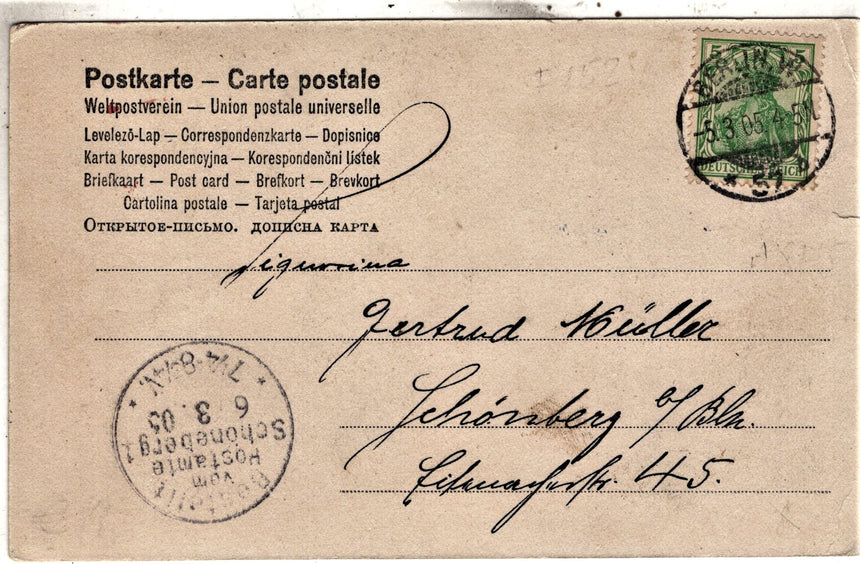 Postkarte — Carte postale
Weltpostverein — Union postale universelle
Levelezö-Lap — Correspondenzkarte — Dopisnice
Karta korespondencyjna — Korespondenčni listek
Briefkaart — Post card — Brefkort — Brevkort
Cartolina postale — Tarjeta postal
Открытое-письмо. дописна карта
5 5
BERLIN W.
-5.3.05.4-5N.
* 57 b
DEUTSCHES REICH
Signorina
Gertrud Müller
Schönberg b/Bln.
Eisenacherstr. 45.
Bestellt
vom
Postamte
Schöneberg 1
6. 3. 05
* 7¼-8¼N. *